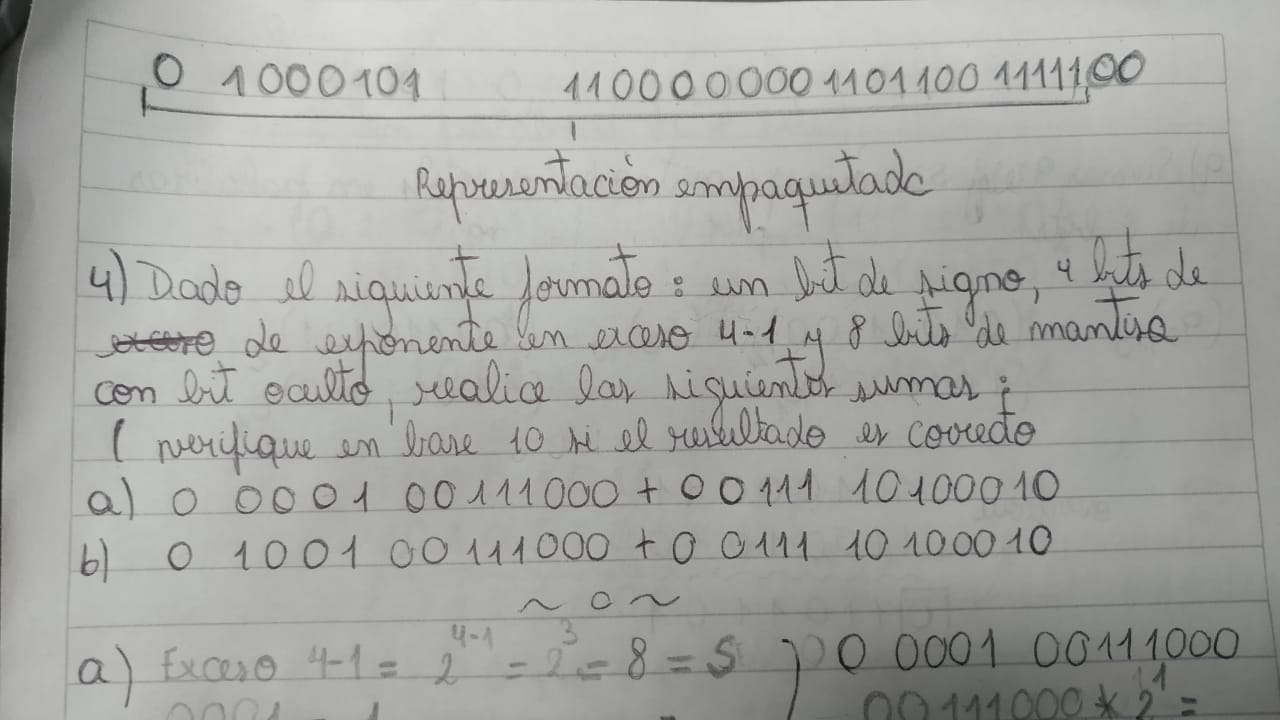 0 1000101 110000000110110011111,00
Representación empaquetada
4) Dado el siguiente formato: un bit de signo, 4 bits de
exceso de exponente en exceso 4-1 y 8 bits de mantisa
con bit oculto, realice las siguientes sumas:
( verifique en base 10 si el resultado es correcto
a) 0 0001 00111000 + 0 0111 10100010
b) 0 1001 00111000 + 0 0111 10100010
~ o ~
a) Exceso 4-1 = 2^4-1 = 2^3 = 8 = S ) 0 0001 00111000
0001 = 1 00111000 * 2^1 =